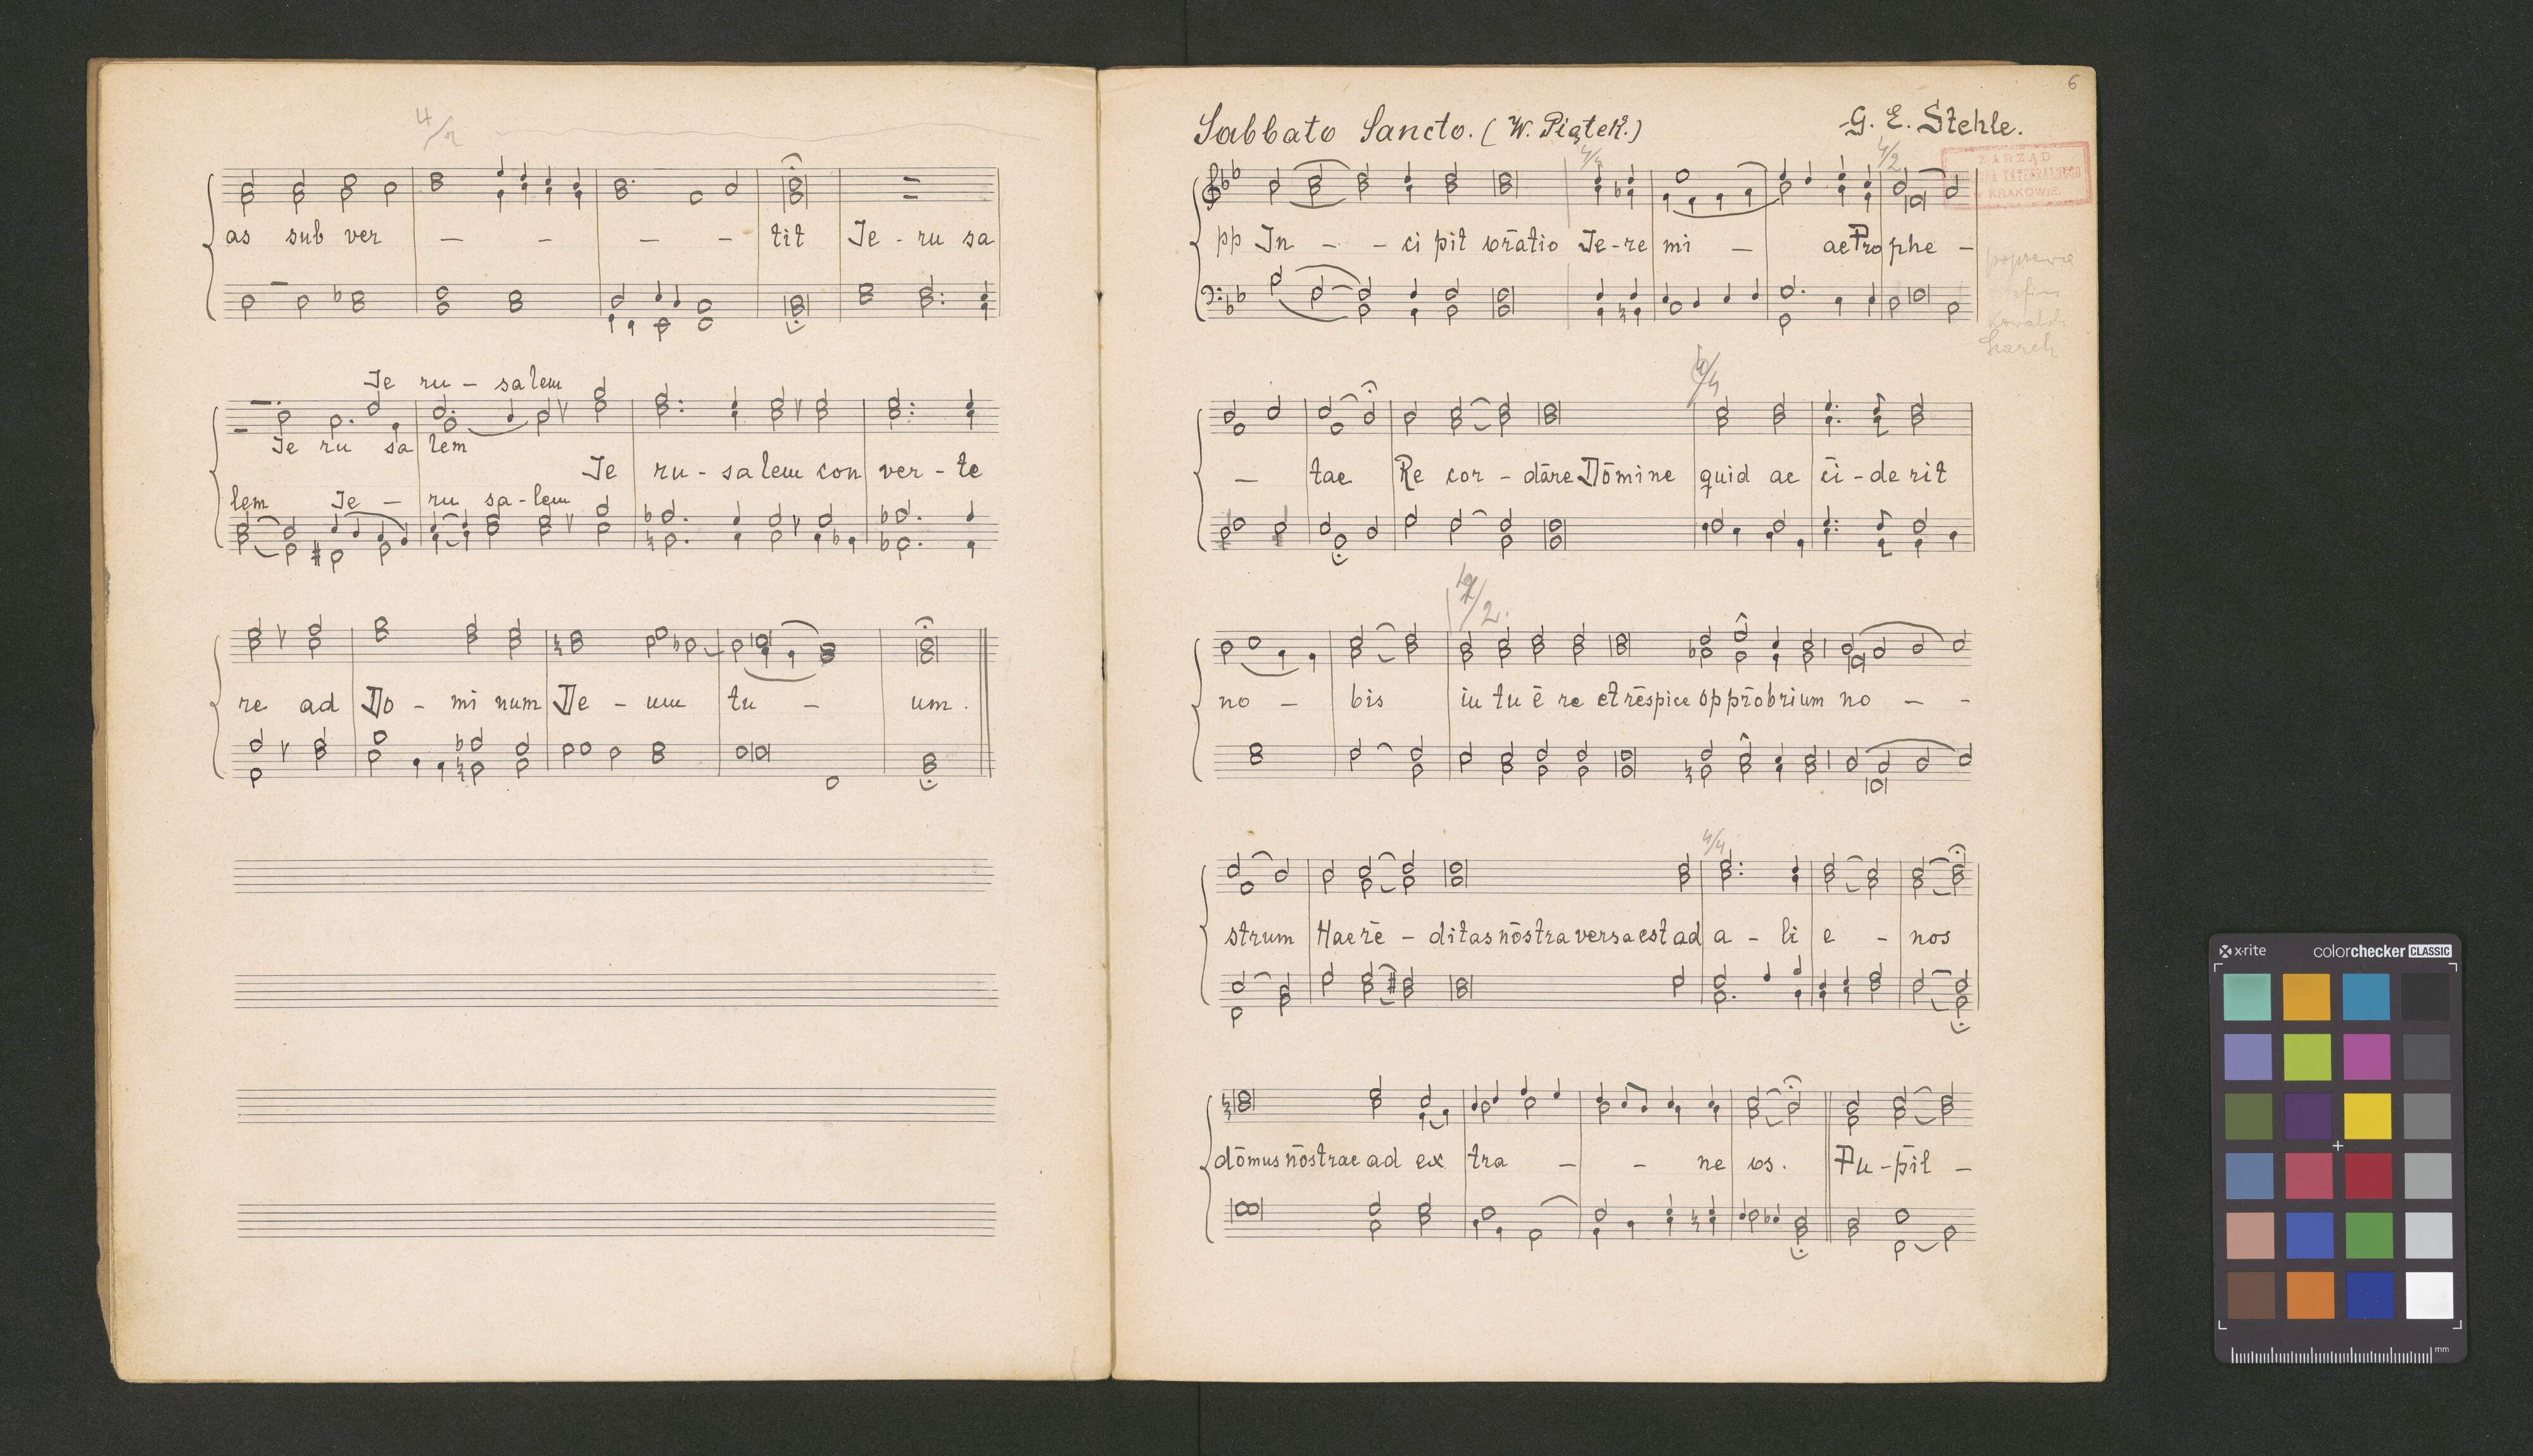 4/2
as sub ver — — — — tit Je - ru sa
Je ru - salem
Je ru sa lem
Je ru - salem con ver - te
lem Je — ru sa - lem
re ad Do - mi num De - um tu — um.
6
Sabbato Sancto. (W. Piątek.)
G. E. Stehle.
4/4 4/2
ZARZĄD
KATEDRALNEGO
W KRAKOWIE
pp In - - ci pit orātio Je-re mi — ae Pro phe —
4/4
— tae Re cor - dāre Dōmine quid ac ci - de rit
4/2.
no — bis in tu ē re et rēspice opprōbrium no — -
4/4
strum Hae rē - ditas nōstra versa est ad a - li e - nos
dōmus nōstrae ad ex tra — - ne os. Pu - pil —
x-rite colorchecker CLASSIC
mm